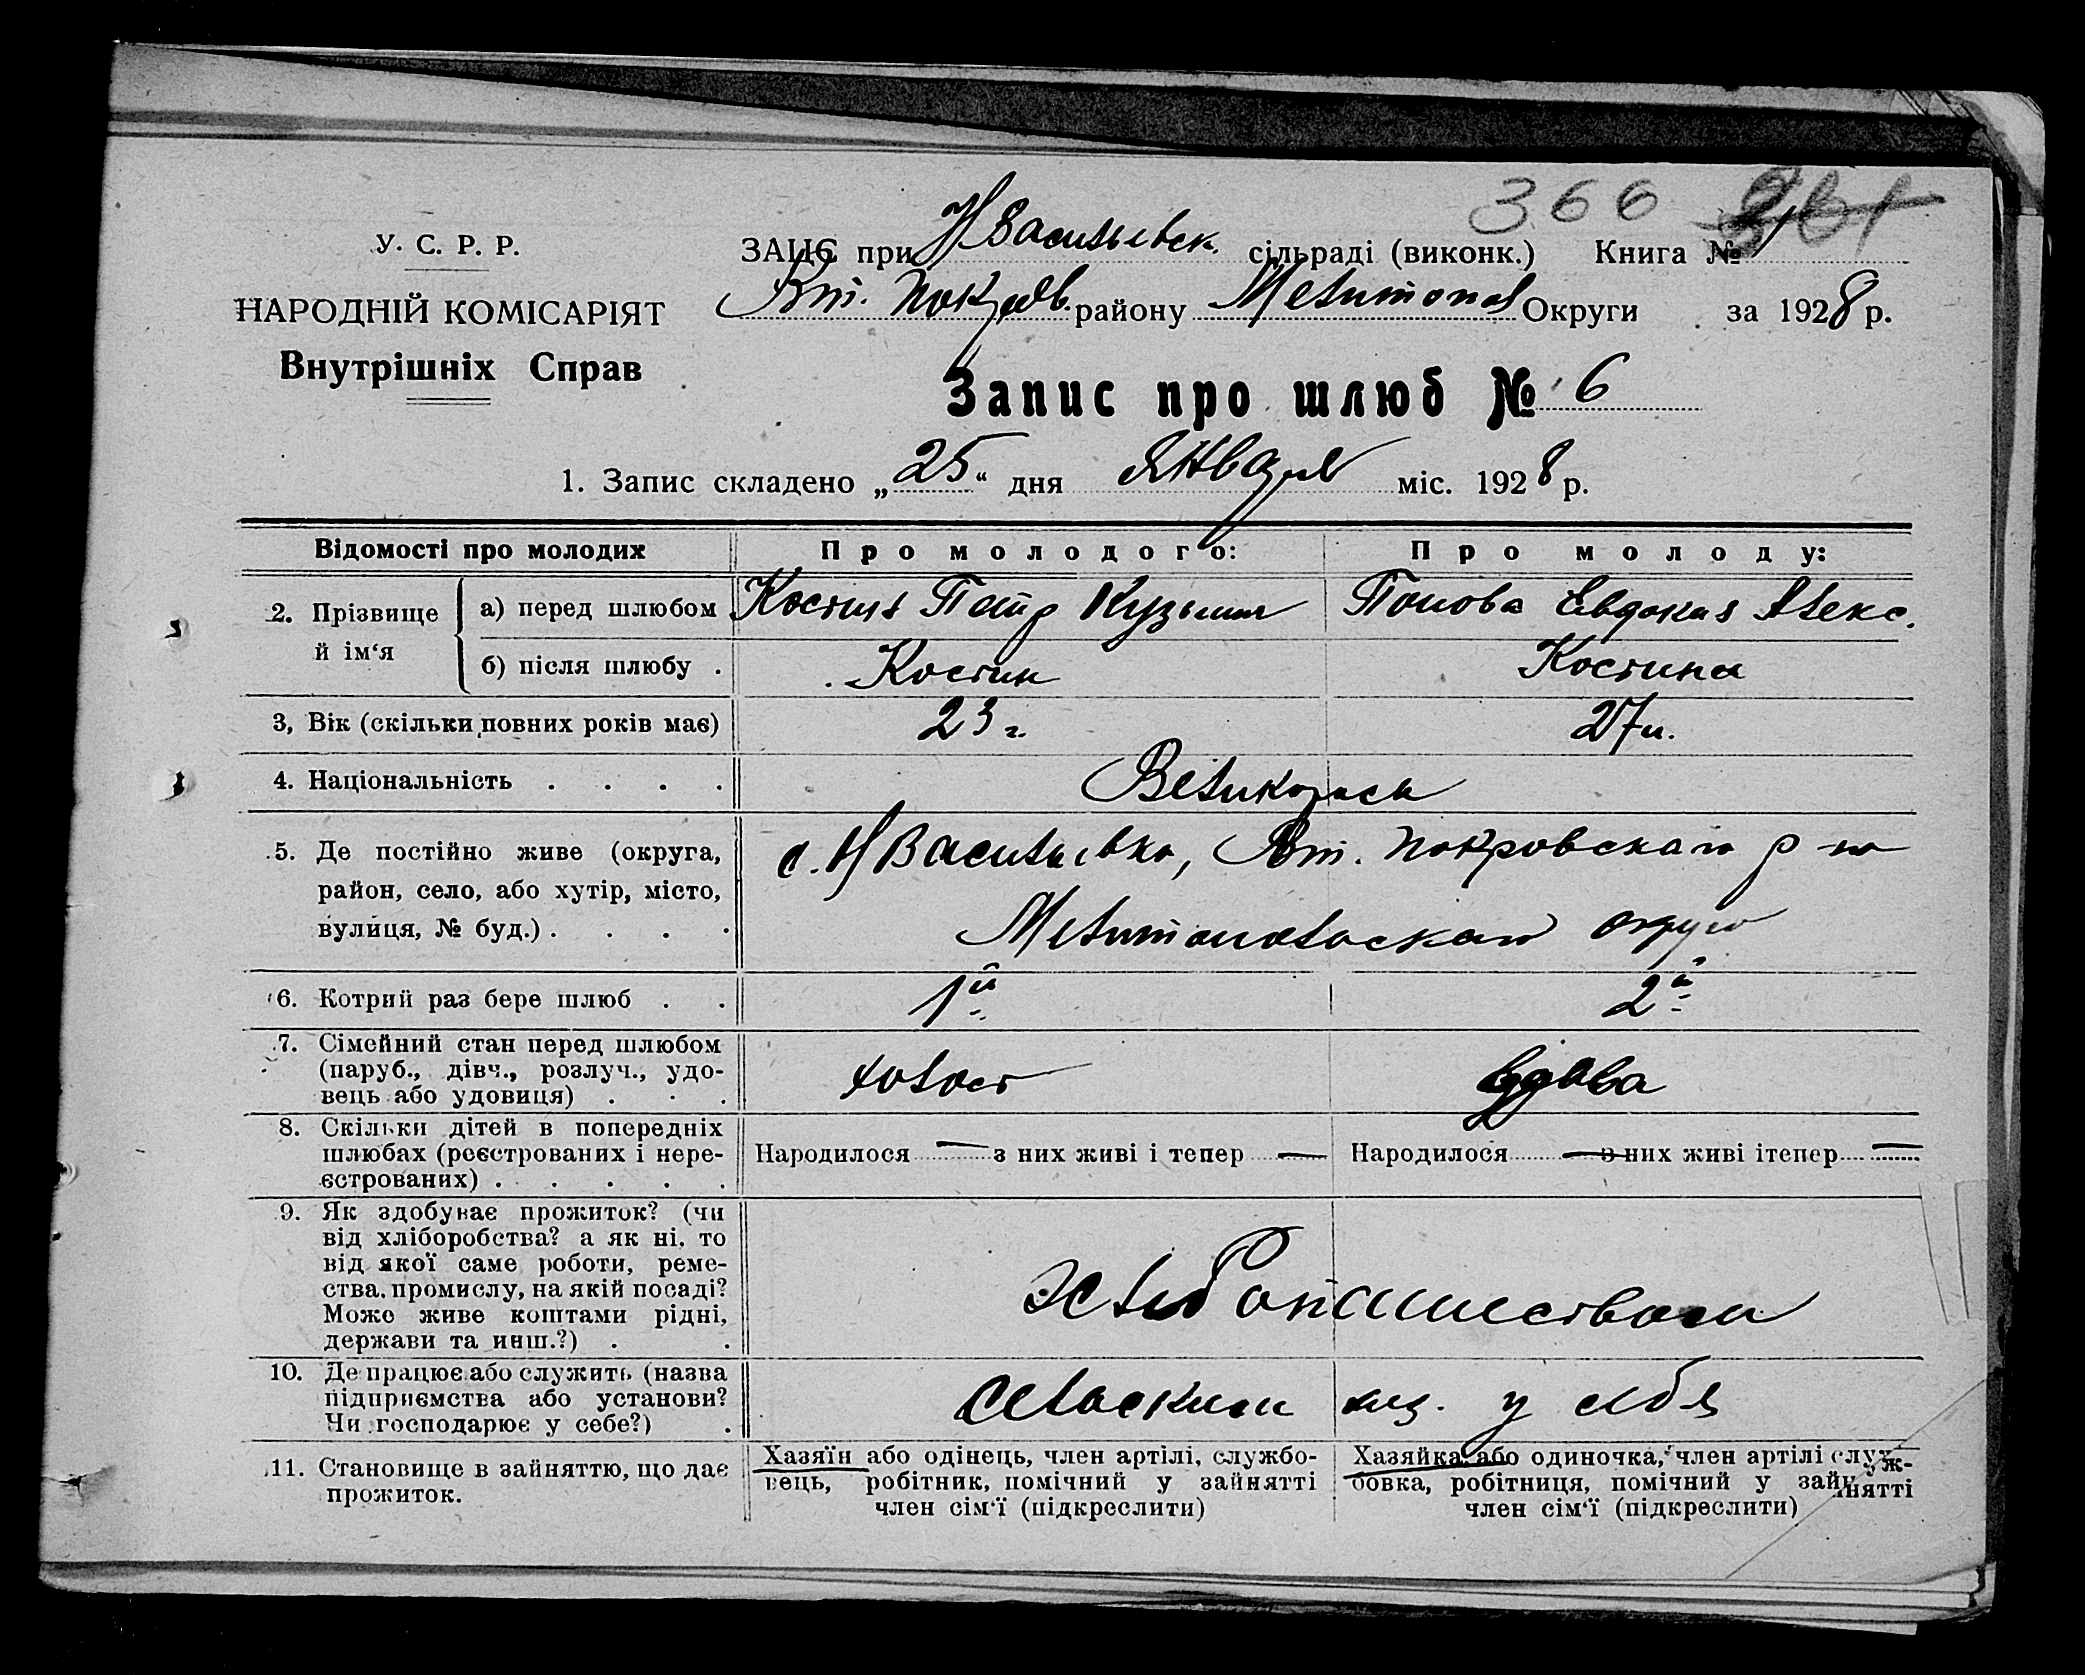 366
У. С. Р. Р.
ЗАЦС при Н Васильевск. сільраді (виконк.) Книга №
НАРОДНІЙ КОМІСАРІЯТ
Вт. Покров. району Мелитопол Округи за 1928 р.
Внутрішніх Справ
Запис про шлюб № 6
1. Запис складено „25“ дня Января міс. 1928 р.
Відомості про молодих
Про молодого:
Про молоду:
2. Прізвище й ім‘я
а) перед шлюбом
Костин Петр Кузьмич
Попова Евдокия Алекс.
б) після шлюбу
Костин
Костина
3, Вік (скільки повних років має)
23 г.
27 л.
4. Національність
Великороссы
5. Де постійно живе (округа,
район, село, або хутір, місто,
вулиця, № буд.)
с. Н Васильевка, Вт. Покровского р-на
Мелитопольского округа
6. Котрий раз бере шлюб
1й
2й
7. Сімейний стан перед шлюбом
(паруб., дівч., розлуч., удо-
вець або удовиця)
холост
вдова
8. Скільки дітей в попередніх
шлюбах (реєстрованих і нере-
єстрованих)
Народилося — з них живі і тепер —
Народилося — з них живі і тепер —
9. Як здобуває прожиток? (чи
від хліборобства? а як ні, то
від якої саме роботи, реме-
ства, промислу, на якій посаді?
Може живе коштами рідні,
держави та инш.?)
Хлебопашеством
10. Де працює або служить (назва
підприємства або установи?
Чи господарює у себе?)
сельским хоз. у себя
11. Становище в зайняттю, що дає
прожиток.
Хазяїн або одінець, член артілі, службо-
вець, робітник, помічний у зайнятті
член сім‘ї (підкреслити)
Хазяйка або одиночка, член артілі служ-
бовка, робітниця, помічний у зайнятті
член сім‘ї (підкреслити)